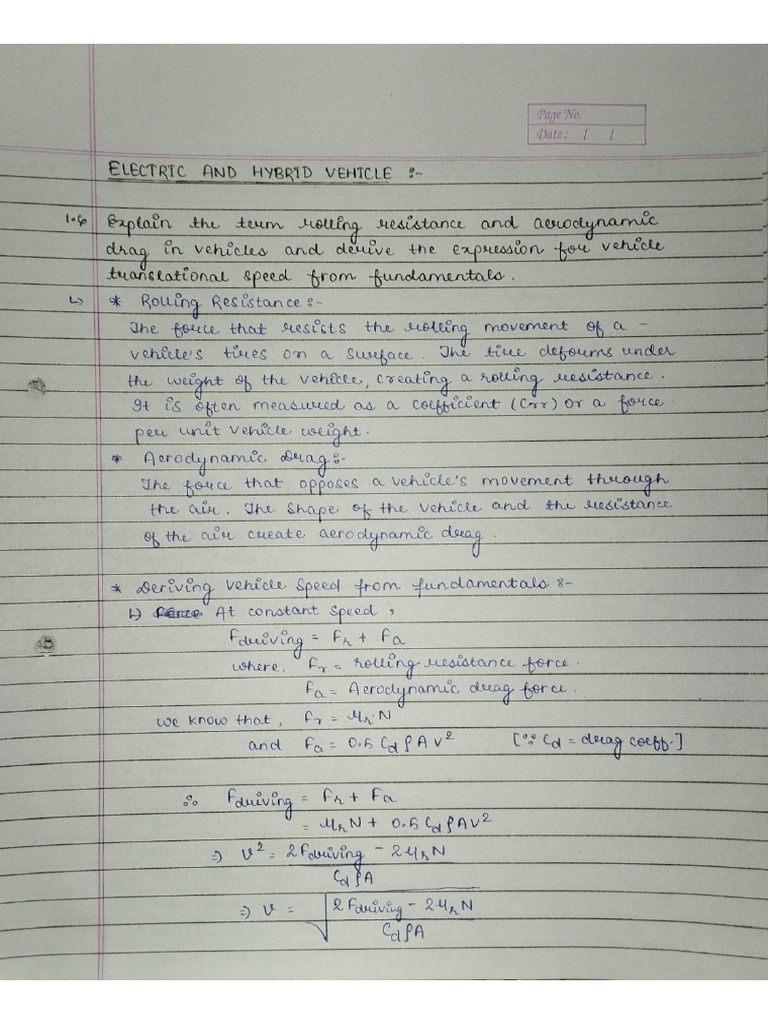 Page No.
Date : / /
ELECTRIC AND HYBRID VEHICLE :-
1.6 Explain the term rolling resistance and aerodynamic
drag in vehicles and derive the expression for vehicle
translational speed from fundamentals.
↳ * Rolling Resistance :-
The force that resists the rolling movement of a -
vehicle's tires on a surface. The tire deforms under
the weight of the vehicle, creating a rolling resistance.
It is often measured as a coefficient (Crr) or a force
per unit vehicle weight.
* Aerodynamic Drag :-
The force that opposes a vehicle's movement through
the air. The shape of the vehicle and the resistance
of the air create aerodynamic drag.
* Deriving Vehicle Speed from fundamentals :-
↳ At constant speed,
Fdriving = Fr + Fa
where, Fr = rolling resistance force.
Fa = Aerodynamic drag force.
we know that, Fr = μr·N
and Fa = 0.5 Cd ρ A v² [∵ Cd = drag coeff.]
∴ Fdriving = Fr + Fa
= μr N + 0.5 Cd ρ A v²
⇒ v² = 2Fdriving - 2μr N
Cd ρ A
⇒ v = √ 2Fdriving - 2μr N
Cd ρ A